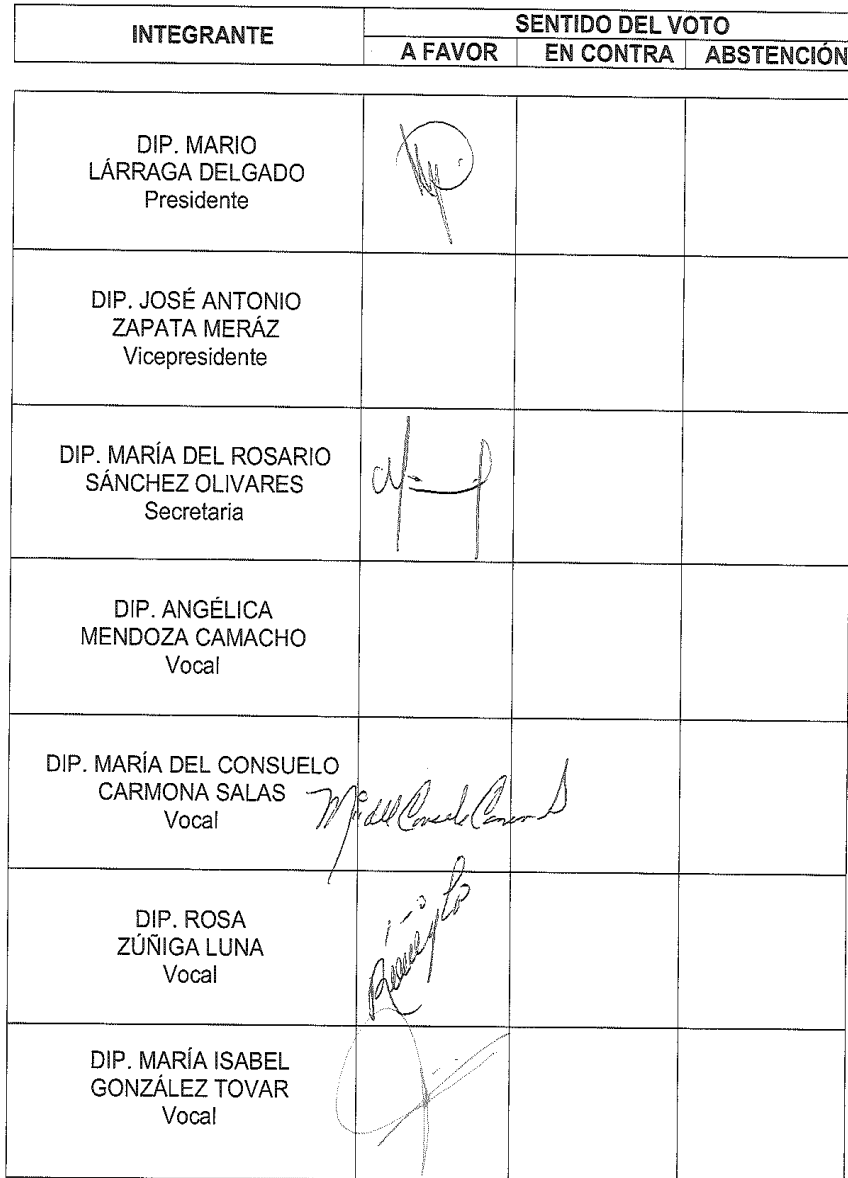 INTEGRANTE
SENTIDO DEL VOTO
A FAVOR EN CONTRA ABSTENCIÓN
DIP. MARIO
LÁRRAGA DELGADO
Presidente
DIP. JOSÉ ANTONIO
ZAPATA MERÁZ
Vicepresidente
DIP. MARÍA DEL ROSARIO
SÁNCHEZ OLIVARES
Secretaria
DIP. ANGÉLICA
MENDOZA CAMACHO
Vocal
DIP. MARÍA DEL CONSUELO
CARMONA SALAS
Vocal
DIP. ROSA
ZÚÑIGA LUNA
Vocal
DIP. MARÍA ISABEL
GONZÁLEZ TOVAR
Vocal